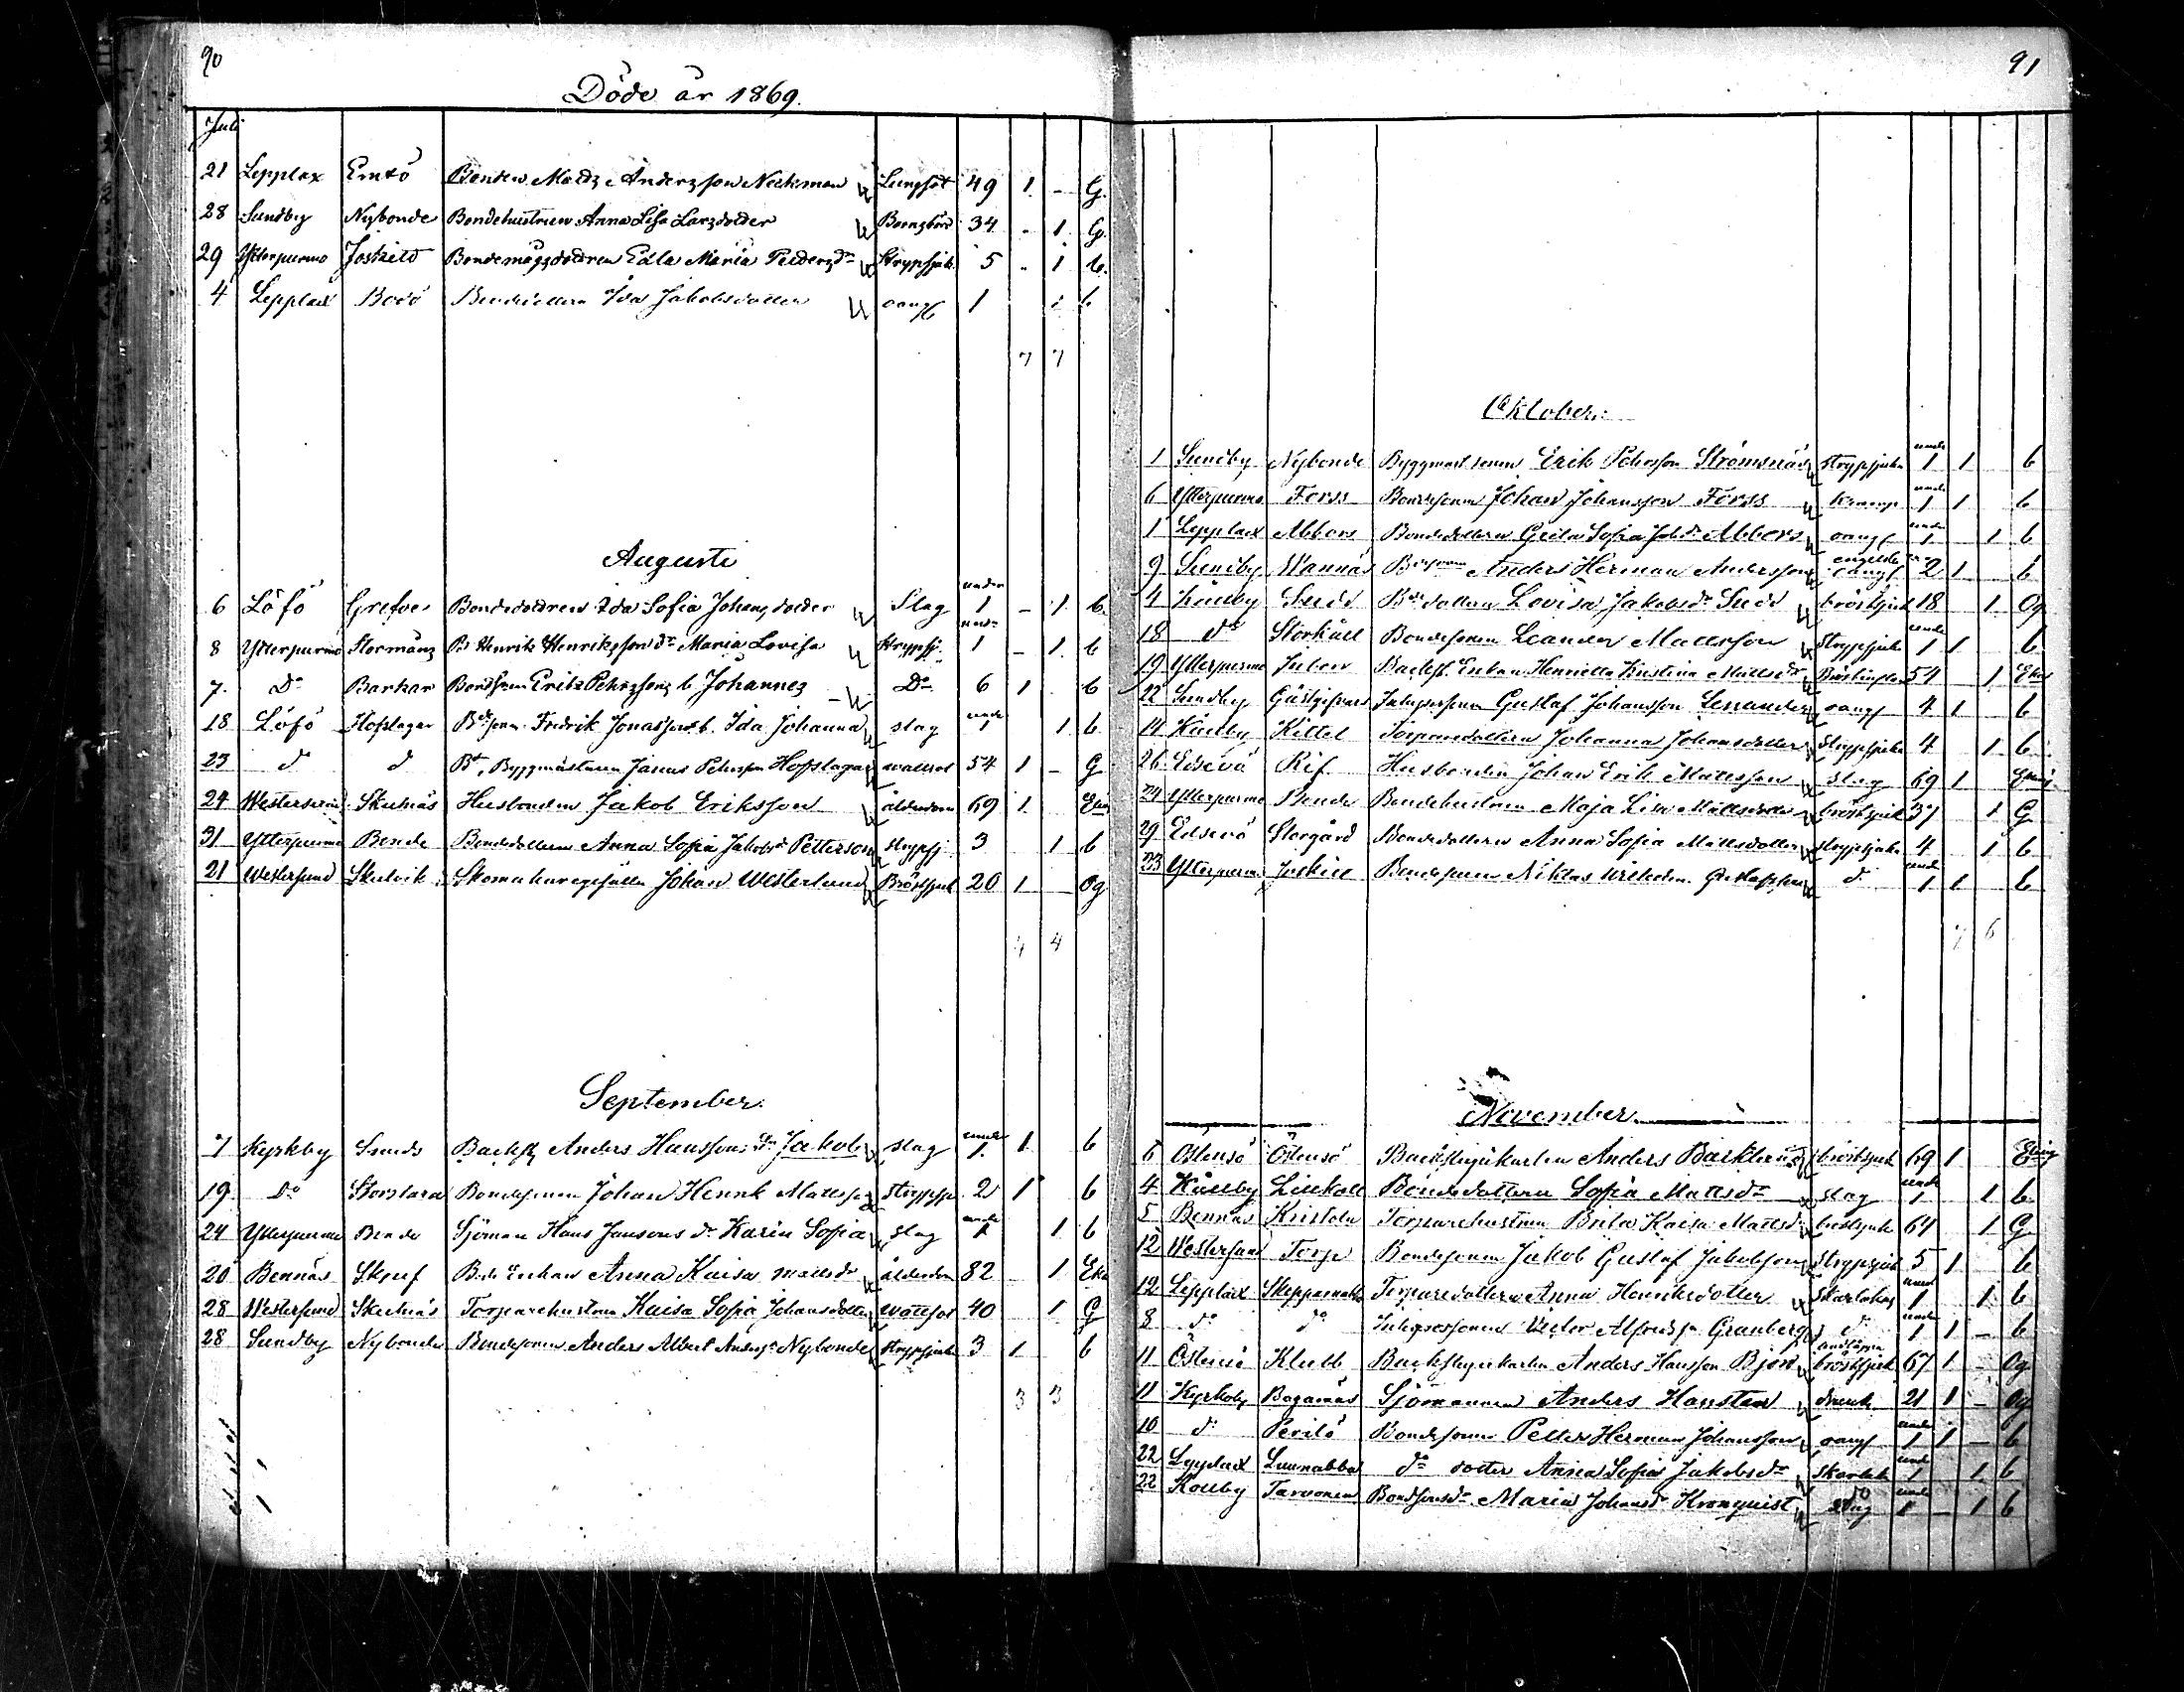 90
Döde år 1869.
Juli
21 Lepplax Emsö Bonden Matz Anderzson Neckman Lungsot 49 1. - G.
28 Sundby Nybonde Bondehustrun Anna Lisa Larzdotter Barnzbörd 34 - 1. G.
29 Ytterpurmo Joskild Bondemågzdottren Edla Maria Pederzdr Strypsjuk. 5 - 1 b.
4 Lepplax Bodö Bondedottern Ida Jakobsdotter oangf 1 1 b
7 7
Augusti
6 Löfö Grefve Bondedottren Ida Sofia Johanzdotter Slag under 1 - 1. b.
8 Ytterpurmo Stormånz B. Henrik Henrikzson dr Maria Lovisa Strypsj. under 1 - 1. b
7. Do Barkar Bondsonen Erik Pehrzsonz b Johannez Do 6 1 b
18 Löfö Hofslagar Bdeson. Fredrik Jonassons b. Ida Johanna slag under 1 1 b
23 d d Bd, Byggmästaren Janus Pehrsson Hofslagar wattsot 54 1 - G
24 Westersund Skutnäs Husbonden Jakob Eriksson ålderdom 69 1.
31 Ytterpurmo Bende Bondedottern Anna Sofia Jakobsdr Petterson strypsj 3 1 b
21 Westersund Skutvik Skomakaregesällen Johan Westerlund Bröstsjuk 20 1 - Og
4 4
September.
7 Kyrkby Sunds Backst. Anders Hanssons Sn Jakob slag under 1. 1. b
19. Do Storstara Bondesonen Johan Henrik Mattsson strypsj. 2 1 b
24 Ytterpurmo Bende Sjöman Hans Jansons dr Karin Sofia slag under 1 1 b
20 Bennäs Skruf Bde Enkan Anna Kaisa Mattsdr ålderdom 82 1 Eka
28 Westersund Skutnäs Torparehustrun Kaisa Sofia Johansdotter wattsot 40 1 G
28 Sundby Nybonde Bondesonen Anders Albert Andersn Nybonde strypsjuka 3 1 b
3 3
91
Oktober.
1 Sundby Nybonde Byggmast. sonen Erik Pehrsson Strömsnäs strypsjuka under 1 1 b
6 Ytterpurmo Forss Bondesonen Johan Johansson Forss kramp under 1 1 b
1 Lepplax Abbors Bondedottern Greta Sofia Johdr Abbors oangf under 1 1 b
9 Sundby Wannäs Bdesonen Anders Herman Andersson engelska oangf 2 1 b
4 Kållby Sudd Bde dottern Lovisa Jakobsdr Sudd bröstsjuk 18 1 Og
18 do Storkåll Bondesonen Leander Mattsson Strypsjuka under 1 1 b
19 Ytterpurmo Backst. Enkan Henrietta Kristina Mattsdr 54 1 Eka
22 Sundby Gästgifvars Gustaf Johansson oangf 4 1 b
14 Kållby Kittel Torparedottern Johanna Johansdotter Strypsjuka 4 1 b
26 Edsevö Rif Husbonden Johan Erik Mattsson slag 69 1
24 Ytterpurmo Bende Bondehustrun Maja Lisa Mattsdotter bröstsjuk 37 1 G
29 Edsevö Storgård Bondedottern Anna Sofia Mattsdotter strypsjuka 4 1 b
23 Ytterpurmo Joskild Bondesonen Niklas Wilhelm Gustafsson d. under 1 1 b
7 6
November
6 Östensö Östensö Backstugukarlen Anders Barklund bröstsjuk 69 1
4 Kållby Linkoll Bondedottern Sofia Mattsdr slag under 1 1 b
5 Bennäs Kristola Torparehustrun Brita Kaisa Mattsdr bröstsjuk 64 1 G
12 Westersund Torp Bondesonen Jakob Gustaf Jakobsson Strypsjuk 5 1 b
12 Lepplax Skepparnabba Torparedottern Anna Henriksdotter Skarlakan under 1 1 b
8 do do Victor Alfredsn Granberg d under 1 1 - b
11 Östensö Klubb Backstugukarlen Anders Hansson Björk andtäppa bröstsjuk 67 1 - Og
11 Kyrkoby Bagarnäs Sjömannen Anders Hansten drunk. 21 1 - Og
10 d Perilö Bondesonen Petter Herman Johansson oangf under 1 1 - b
22 Lepplax Lunnabba do dotter Anna Sofia Jakobsdr skarlak under 1 1 b
22 Kållby Tarvonen Bondsonsdr Maria Johansdr Kronqvist slag under 1 - 1 b